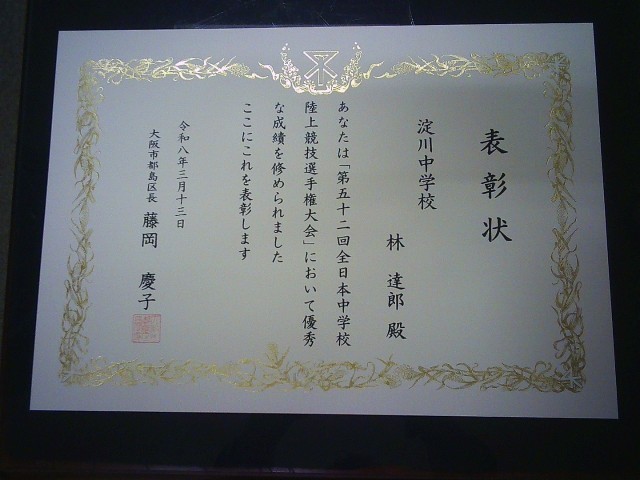 表彰状
淀川中学校
林 達郎 殿
あなたは「第五十二回全日本中学校
陸上競技選手権大会」において優秀
な成績を修められました
ここにこれを表彰します
令和八年三月十三日
大阪市都島区長 藤岡 慶子